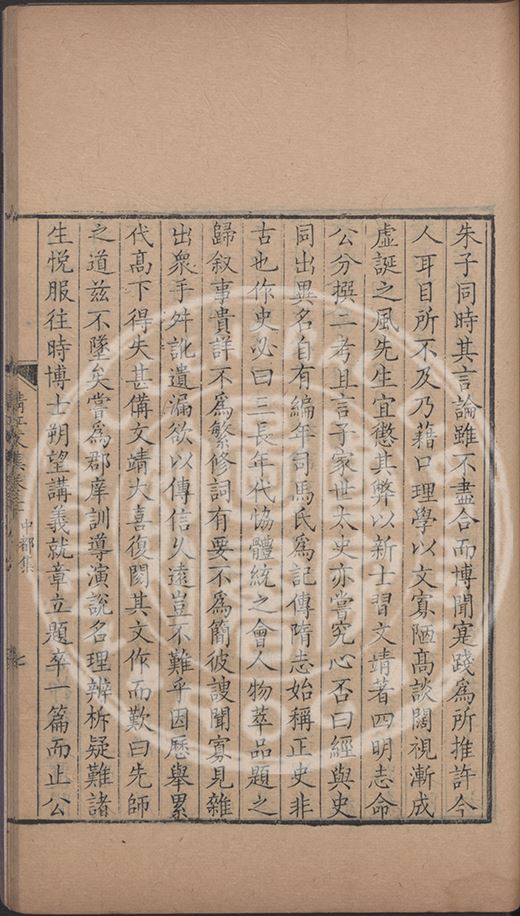 朱子同時其言論雖不盡合而博聞寔踐爲所推許今
人耳目所不及乃藉口理學以文寡陋髙談闊視漸成
虛誕之風先生宜懲其弊以新士習文靖著四明志命
公分撰二考且言子家世太史亦嘗究心否曰經與史
同出異名自有編年司馬氏爲記傳隋志始稱正史非
古也作史必曰三長年代協體統之會人物萃品題之
歸叙事貴詳不爲繁修詞有要不爲簡彼謏聞寡見雜
出衆手舛訛遺漏欲以傳信乆遠豈不難乎因歷舉累
代髙下得失甚備文靖大喜復閱其文作而歎曰先師
之道兹不墜矣嘗爲郡庠訓導演說名理辨析疑難諸
生悅服往時博士朔望講義就章立題卒一篇而止公
清江文集卷
中都集
七